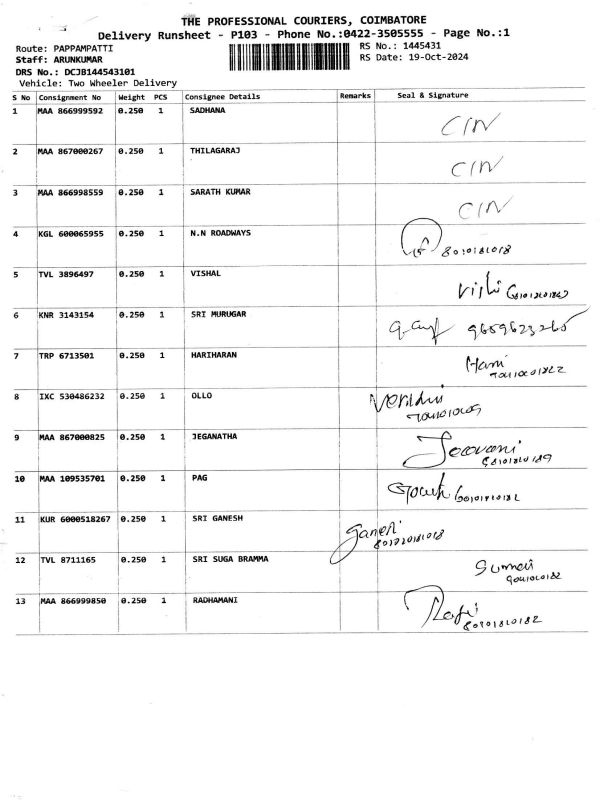 THE PROFESSIONAL COURIERS, COIMBATORE
Delivery Runsheet - P103 - Phone No.:0422-3505555 - Page No.:1
Route: PAPPAMPATTI
RS No.: 1445431
Staff: ARUNKUMAR
RS Date: 19-Oct-2024
DRS No.: DCJB144543101
Vehicle: Two Wheeler Delivery
S No Consignment No Weight PCS Consignee Details Remarks Seal & Signature
1 MAA 866999592 0.250 1 SADHANA CIN
2 MAA 867000267 0.250 1 THILAGARAJ CIN
3 MAA 866998559 0.250 1 SARATH KUMAR CIN
4 KGL 600065955 0.250 1 N.N ROADWAYS
5 TVL 3896497 0.250 1 VISHAL
6 KNR 3143154 0.250 1 SRI MURUGAR 9659623265
7 TRP 6713501 0.250 1 HARIHARAN Hari
8 IXC 530486232 0.250 1 OLLO
9 MAA 867000825 0.250 1 JEGANATHA
10 MAA 109535701 0.250 1 PAG
11 KUR 6000518267 0.250 1 SRI GANESH
12 TVL 8711165 0.250 1 SRI SUGA BRAMMA
13 MAA 866999850 0.250 1 RADHAMANI